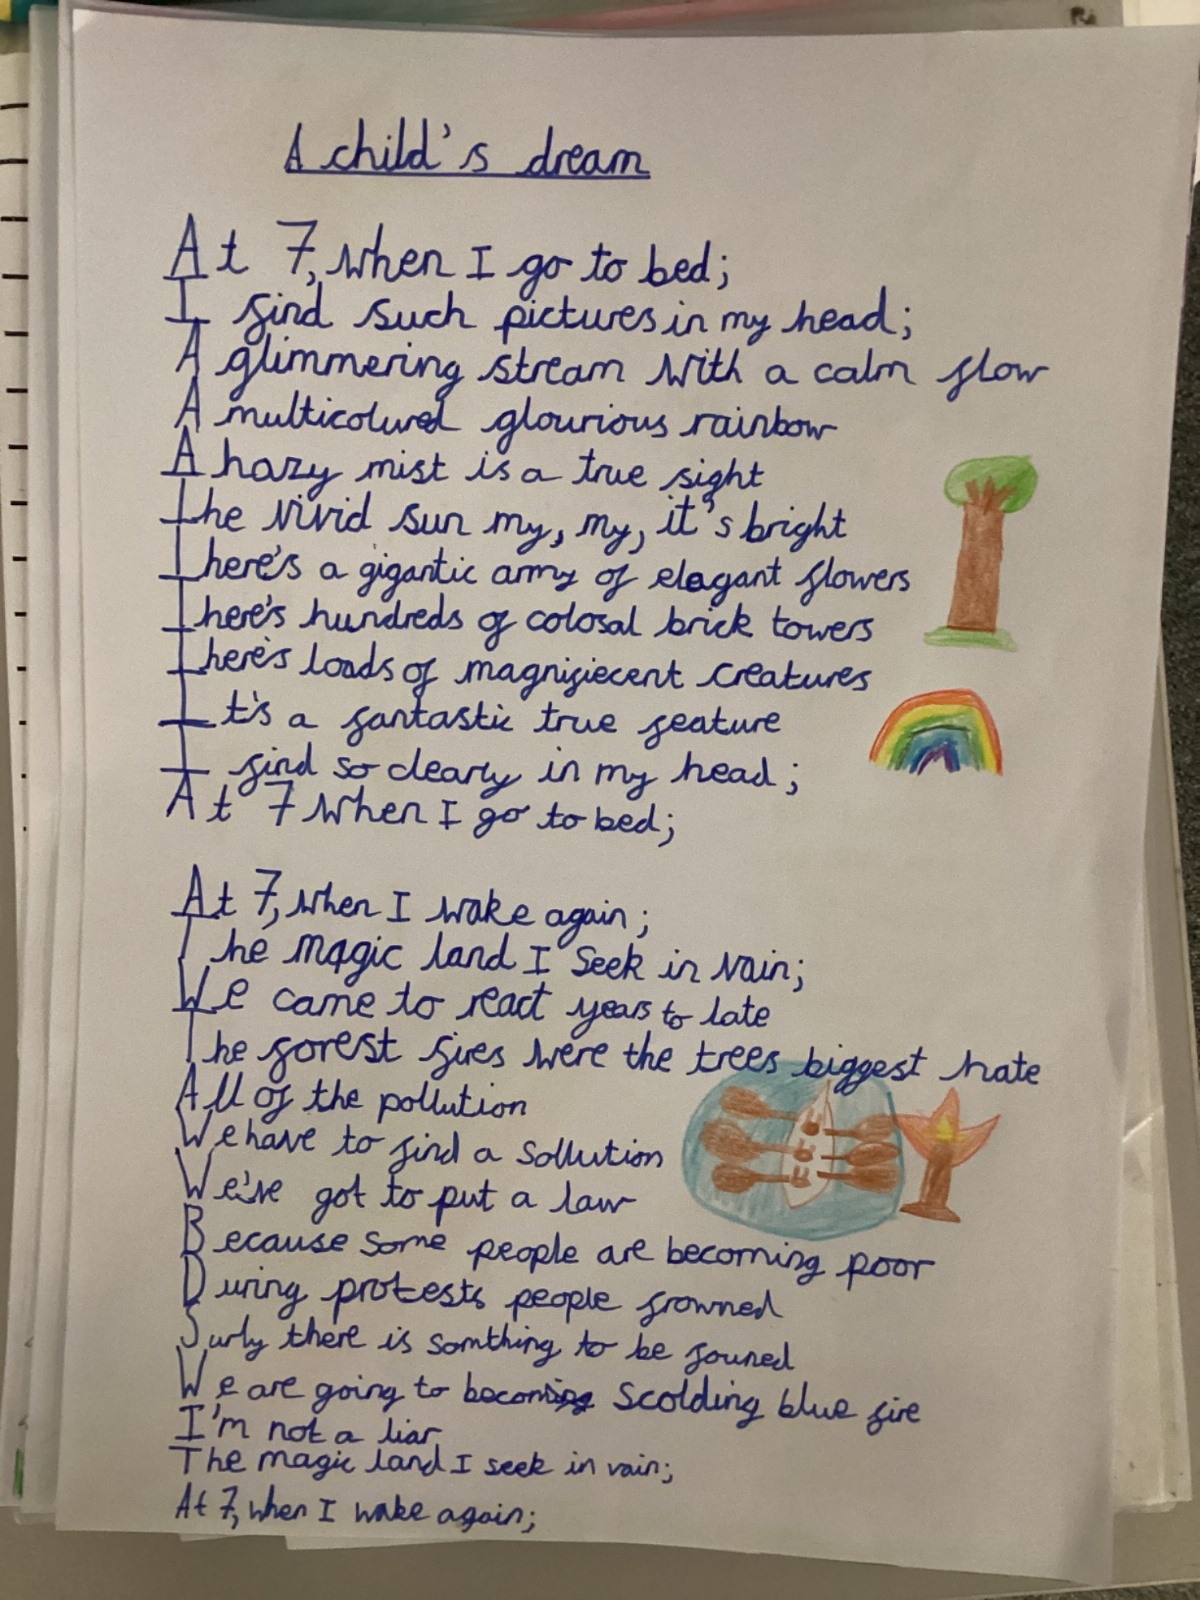 A child's dream
At 7, when I go to bed;
I find such pictures in my head;
A glimmering stream with a calm flow
A multicolured glourious rainbow
A hazy mist is a true sight
The vivid sun my, my, it's bright
There's a gigantic army of elegant flowers
There's hundreds of colosal brick towers
There's loads of magnifiecent creatures
It's a fantastic true feature
I find so clearly in my head;
At 7 when I go to bed;
At 7, when I wake again;
The magic land I seek in vain;
We came to react years to late
The forest fires were the trees biggest hate
All of the pollution
We have to find a sollution
We've got to put a law
Because some people are becoming poor
During protests people frowned
Surly there is somthing to be founed
We are going to become scolding blue fire
I'm not a liar
The magic land I seek in vain;
At 7, when I wake again;